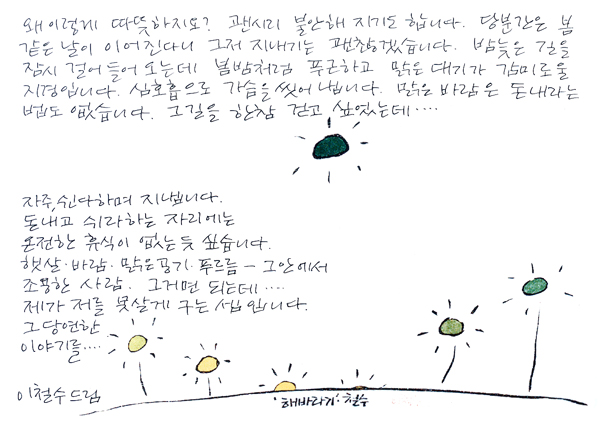 왜 이렇게 따뜻하지요? 괜시리 불안해 지기도 합니다. 당분간은 봄
같은 날이 이어진다니 그저 지내기는 괜찮겠습니다. 밤늦은 길을
잠시 걸어 들어 오는데 봄밤처럼 푸근하고 맑은 대기가 감미로울
지경입니다. 심호흡으로 가슴을 씻어 냅니다. 맑은 바람은 돈내라는
법도 없습니다. 그길을 한참 걷고 싶었는데····
자주, 쉰다하며 지냅니다.
돈내고 쉬라하는 자리에는
온전한 휴식이 없는듯 싶습니다.
햇살·바람·맑은공기·푸르름 – 그안에서
조용한 사람. 그거면 되는데····
제가 저를 못살게 구는 셈입니다.
그 당연한
이야기를····
이철수 드림
·해바라기· 철수